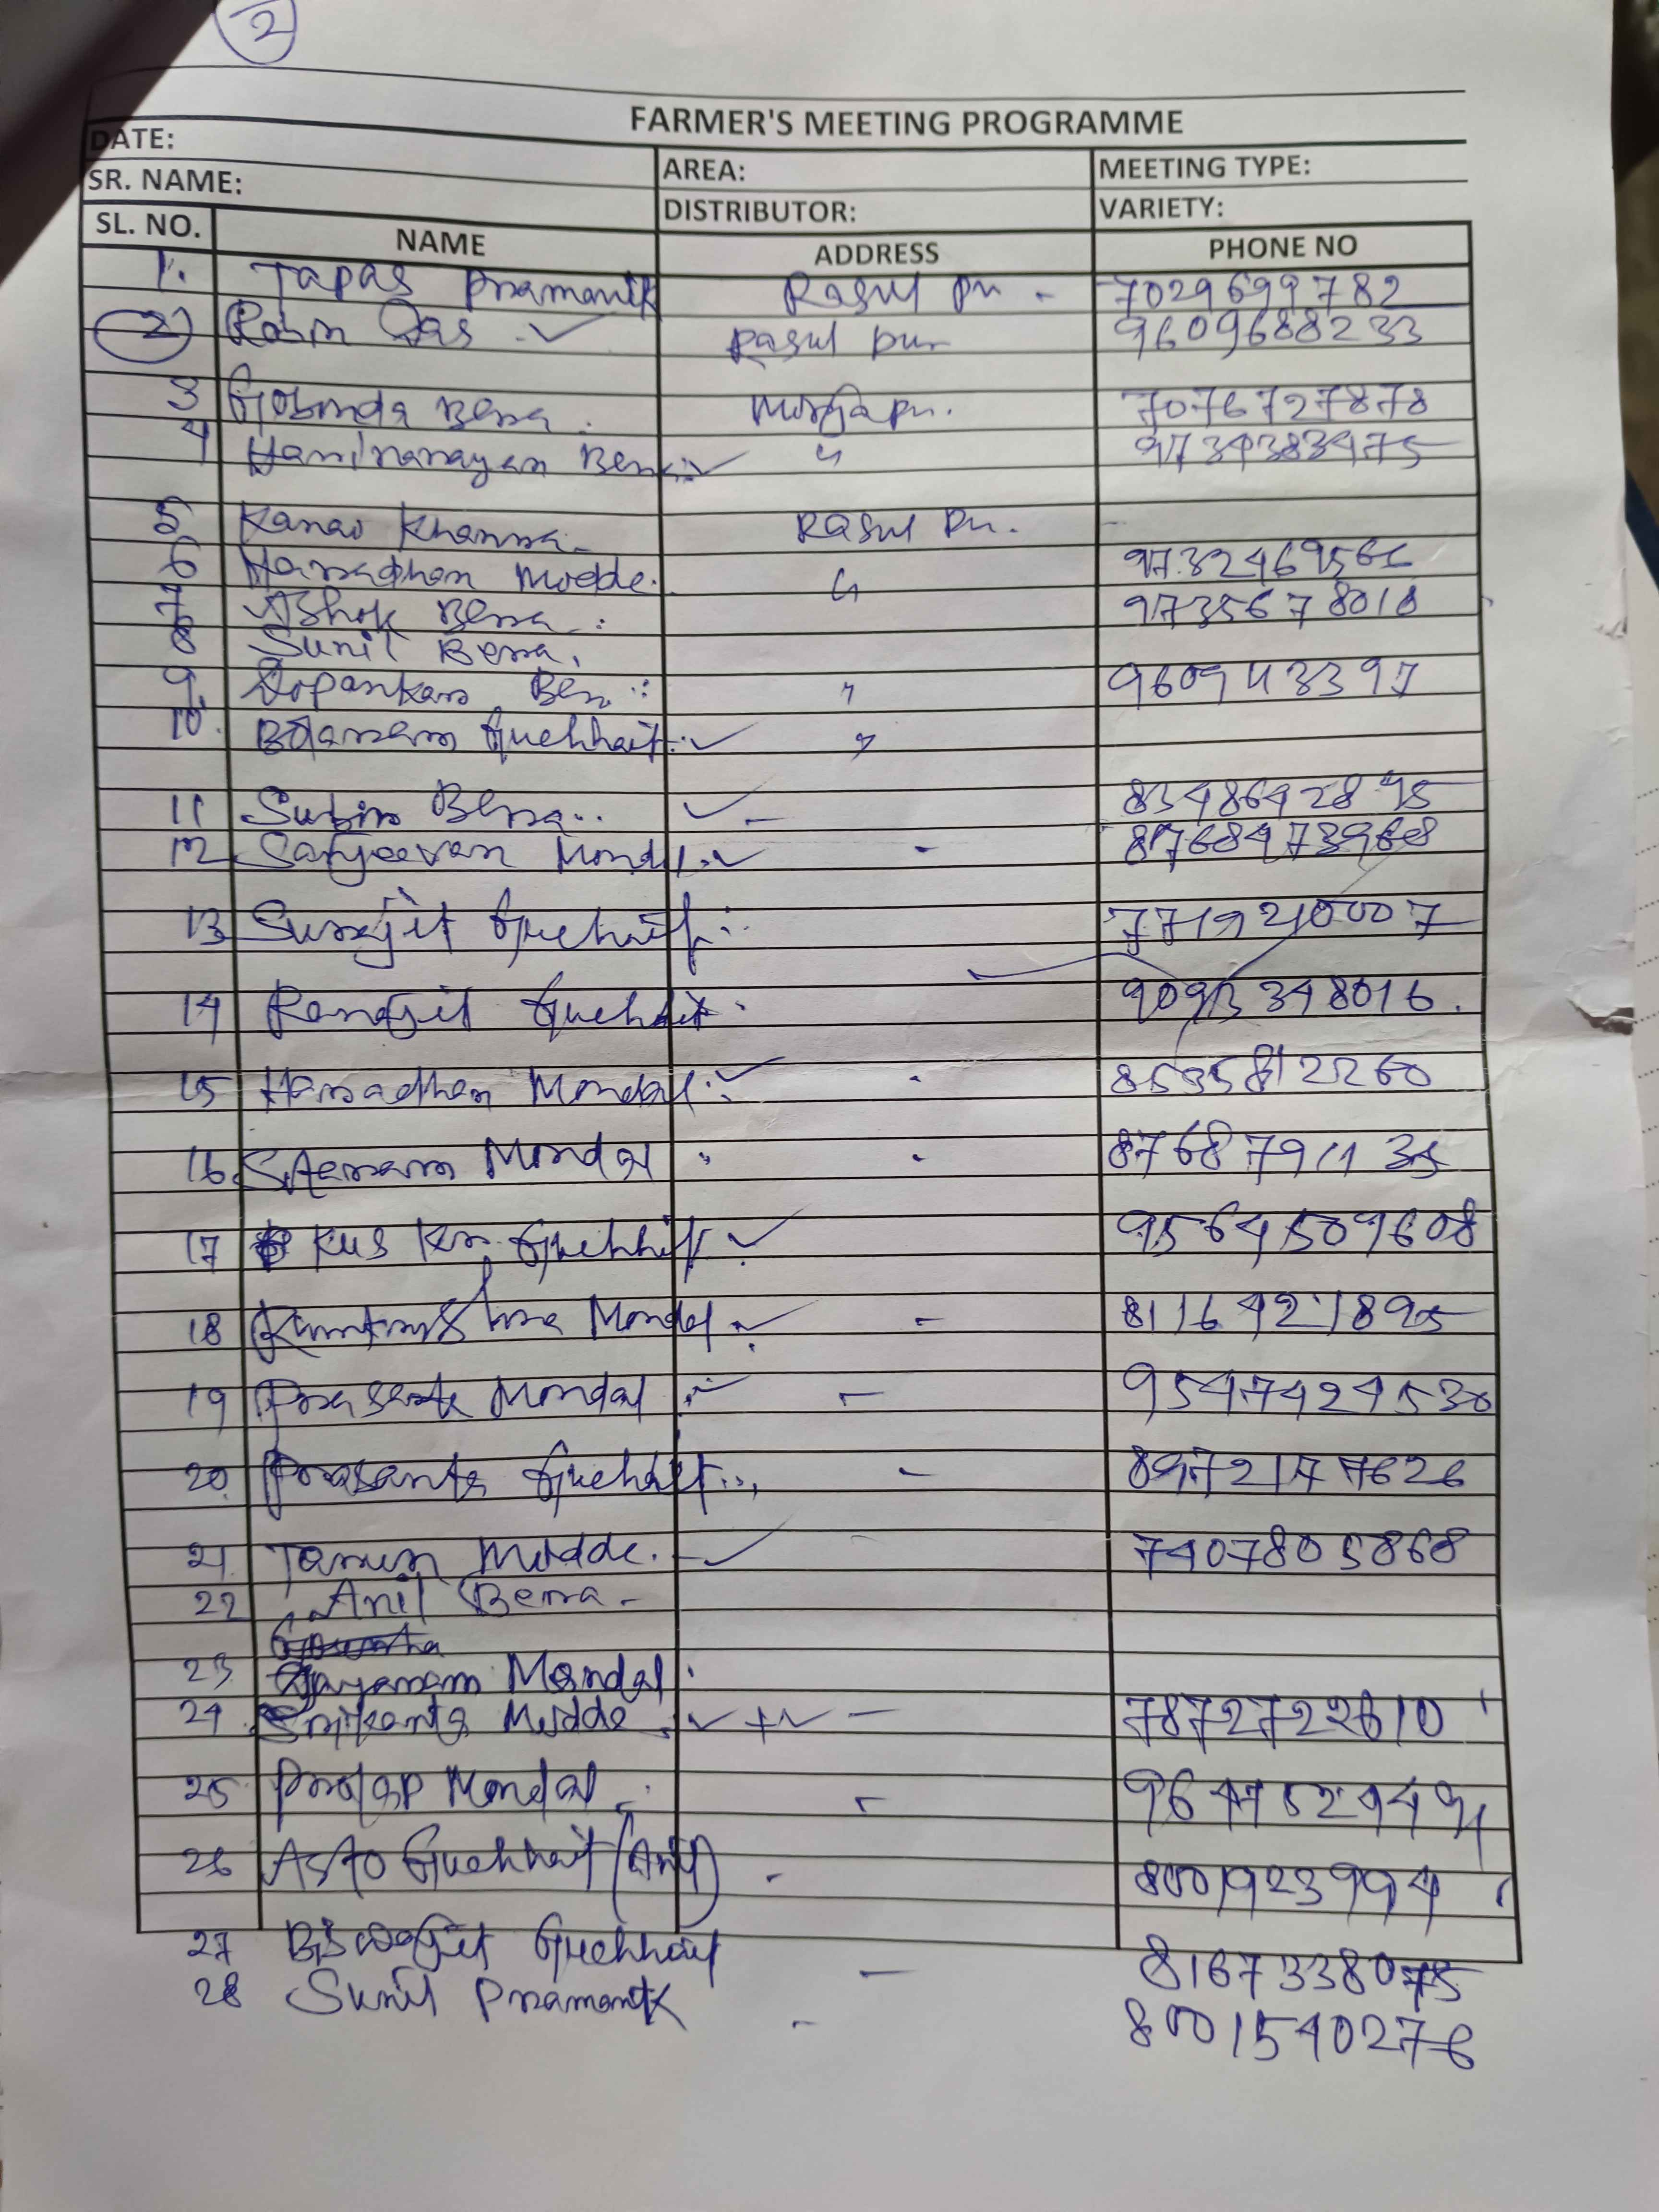 2
FARMER'S MEETING PROGRAMME
DATE:
AREA: MEETING TYPE:
SR. NAME:
DISTRIBUTOR: VARIETY:
SL. NO. NAME ADDRESS PHONE NO
1. Tapas Pramanik Rasul pur - 7029699782
2) Rabin Das Rasul pur 9609688233
3 Gobinda Bera. Mirjapur. 7076727878
4 Harinarayan Bera 9734383475
5 Kanai Khanra Rasul pur.
6 Haradhan Midde. 97324695
7 Ashok Bera 9735678018
8 Sunil Bera.
9 Dipankar Bera " 9609433397
10. Balaram Guchhait "
11 Subir Bera 8348642895
12 Sanjeevan Mondal - 8768473968
13 Surajit Guchait 7719210007
14 Ranajit Guchhait 9093348016.
15 Haradhan Mondal 8535812260
16 Sitaram Mondal 8768791135
17 Kus Kr. Guchhait 9564509608
18 Mondal - 8116421895
19 Prasanta Mondal - 9547424530
20. Prasanta Guchhait - 8972177626
21. Tarun Midde. - 7407805868
22 Anil Bera -
23 Jayaram Mondal
24 Srikanta Midde - 7872722610
25 Pratap Mondal - 96475294
26 Asto Guchhait - 8001923994
27 Biswajit Guchhait - 8167338075
28 Sunil Pramanik - 8001540276